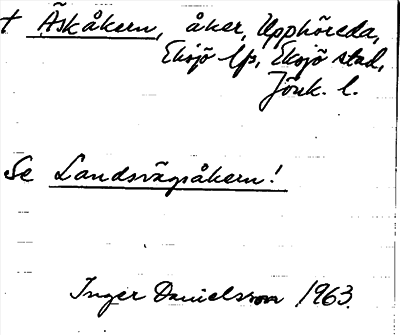 + Äskåkern, åker, Upphöreda,
Eksjö lfs, Eksjö stad,
Jönk. l.
Se Landsvägsåkern!
Inger Danielsson 1963.